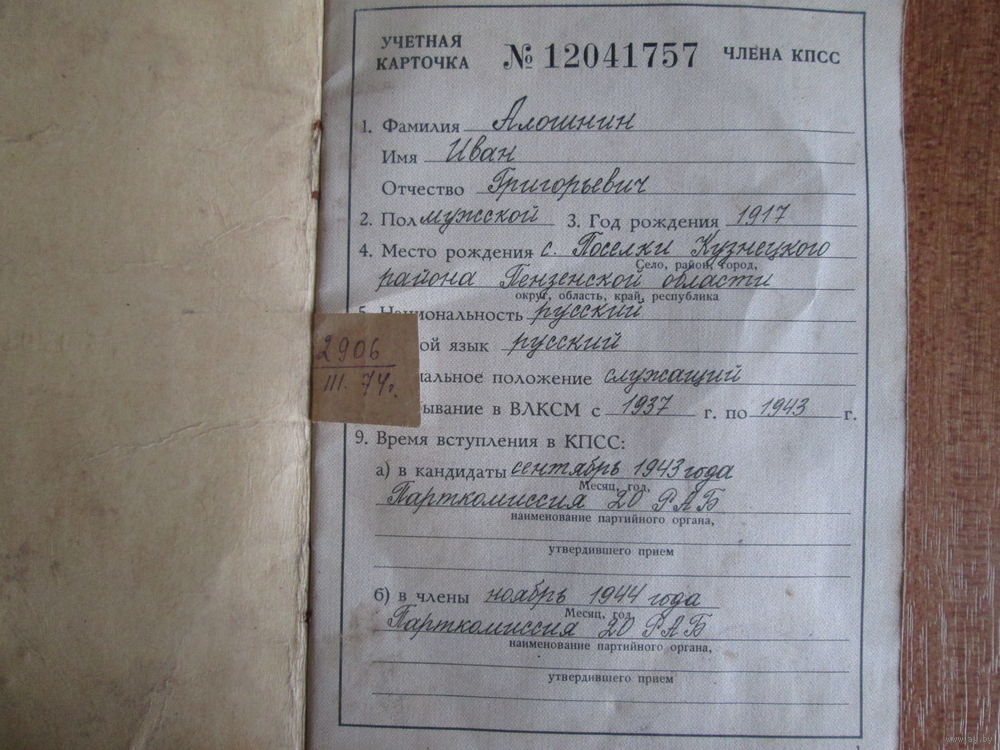 УЧЕТНАЯ КАРТОЧКА № 12041757 ЧЛЕНА КПСС
1. Фамилия Алошнин
Имя Иван
Отчество Григорьевич
2. Пол мужской 3. Год рождения 1917
4. Место рождения с. Поселки Кузнецкого
Село, район, город,
района Пензенской области
округ, область, край, республика
5. Национальность русский
ой язык русский
альное положение служащий
бывание в ВЛКСМ с 1937 г. по 1943 г.
2906
III. 74г.
9. Время вступления в КПСС:
а) в кандидаты сентябрь 1943 года
Месяц, год,
Парткомиссия 20 РАБ
наименование партийного органа,
утвердившего прием
б) в члены ноябрь 1944 года
Месяц, год,
Парткомиссия 20 РАБ
наименование партийного органа,
утвердившего прием